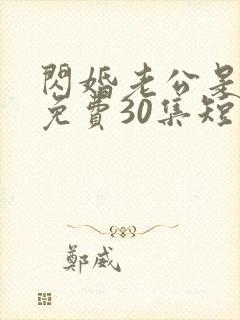 閃婚老公是
免費30集短
鄭威